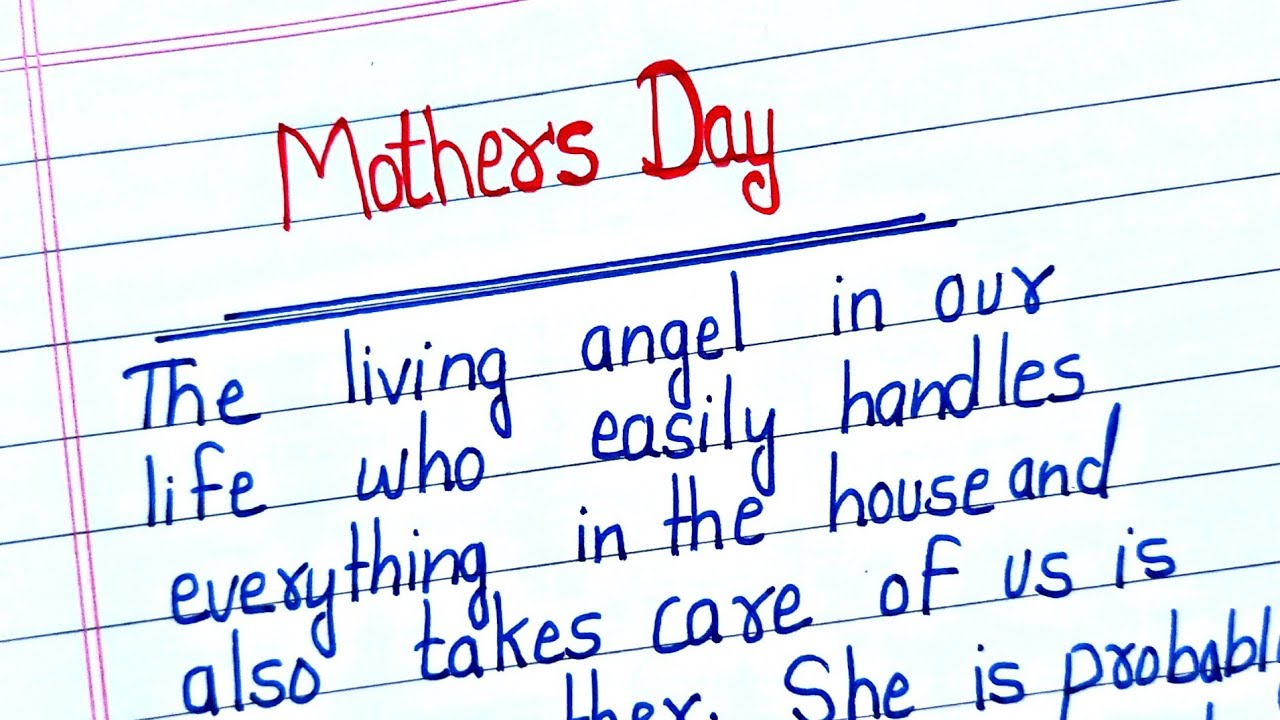 Mothers Day
The living angel in our
life who easily handles
everything in the house and
also takes care of us is
She is probably